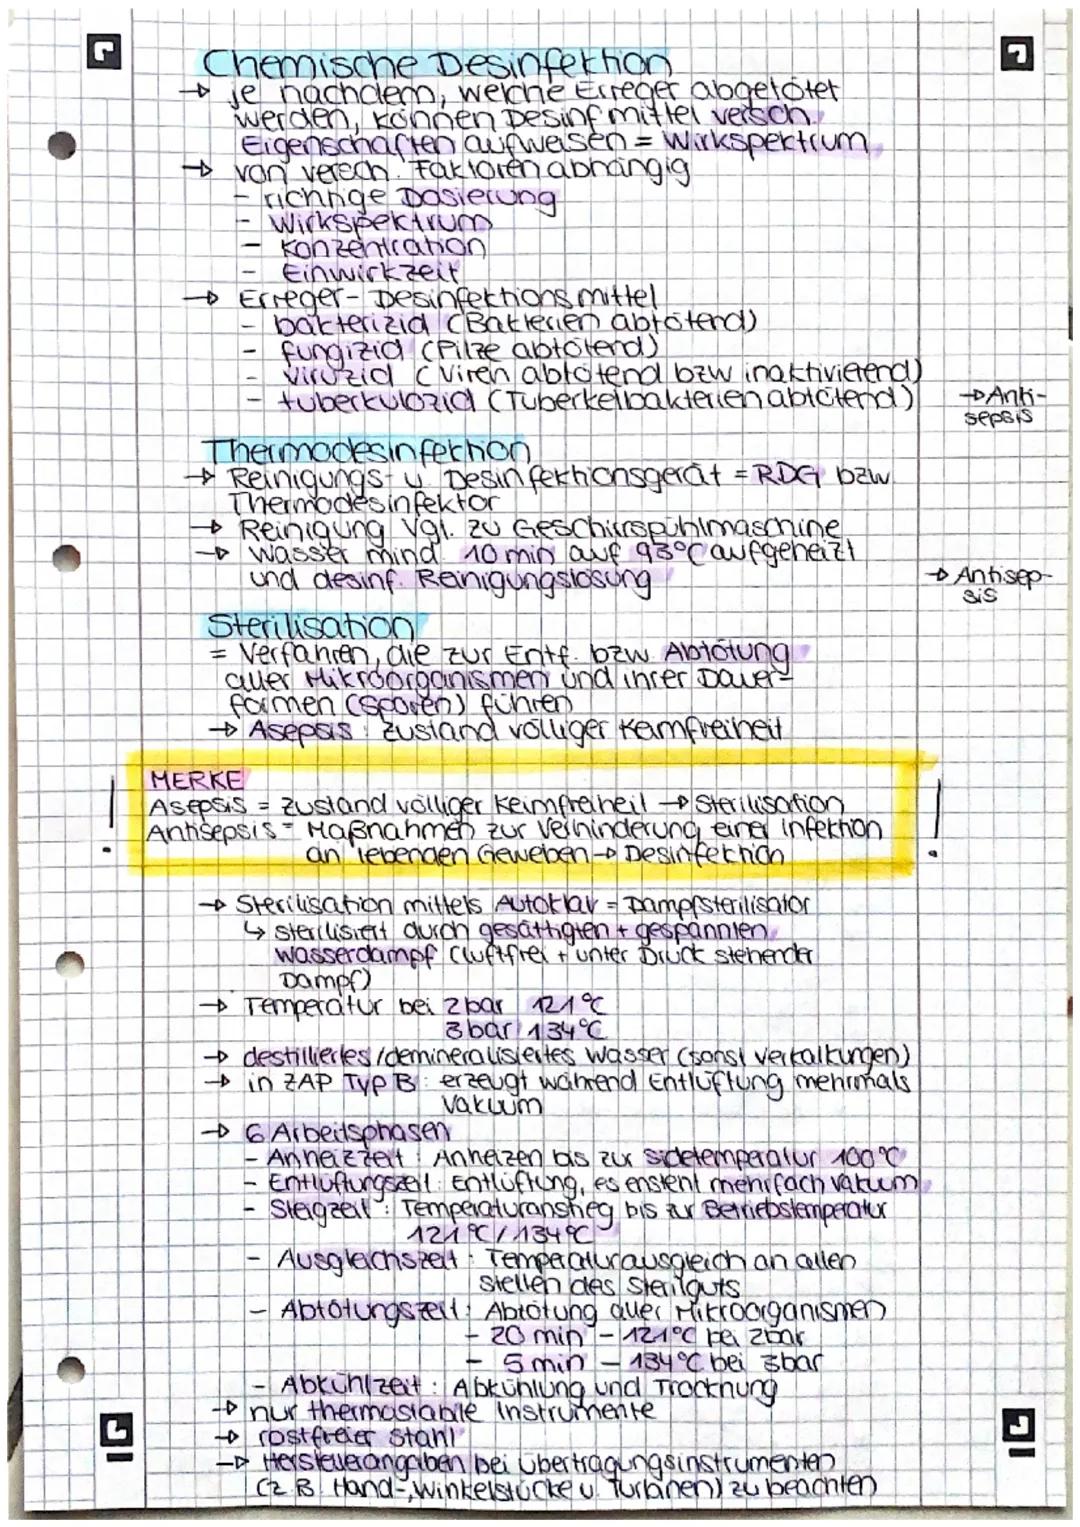 Chemische Desinfektion
→ je nachdem, welche Erreger abgetötet
werden, können Desinfmittel versch.
Eigenschaften aufweisen = Wirkspektrum
→ von versch. Faktoren abhängig
- richtige Dosierung
- Wirkspektrum
- Konzentration
- Einwirkzeit
→ Erreger- Desinfektionsmittel
- bakterizid (Bakterien abtötend)
- fungizid (Pilze abtötend)
- viruzid (Viren abtötend bzw inaktivierend)
- tuberkulozid (Tuberkelbakterien abtötend)
→ Anti-
sepsis
Thermodesinfektion
→ Reinigungs- u. Desinfektionsgerät = RDG bzw.
Thermodesinfektor
→ Reinigung vgl. zu Geschirrspühlmaschine
→ Wasser mind. 10 min auf 93°C aufgeheizt
und desinf. Reinigungslösung
→ Antisep-
sis
Sterilisation
= Verfahren, die zur Entf. bzw. Abtötung
aller Mikroorganismen und ihrer Dauer-
formen (Sporen) führen
→ Asepsis: Zustand völliger Keimfreiheit
MERKE
! Asepsis = Zustand völliger Keimfreiheit → Sterilisation !
Antisepsis = Maßnahmen zur Verhinderung einer Infektion
an lebenden Geweben → Desinfektion
→ Sterilisation mittels Autoklav = Dampfsterilisator
↳ sterilisiert durch gesättigten + gespannten
Wasserdampf (luftfrei + unter Druck stehender
Dampf)
→ Temperatur bei 2bar 121°C
3bar 134°C
→ destilliertes/demineralisiertes Wasser (sonst Verkalkungen)
→ in ZAP Typ B: erzeugt während Entlüftung mehrmals
Vakuum
→ 6 Arbeitsphasen
- Anheizzeit: Anheizen bis zur Sidetemperatur 100°C
- Entlüftungszeit: Entlüftung, es enstent mehrfach Vakuum
- Steigzeit: Temperaturanstieg bis zur Betriebstemperatur
121°C/134°C
- Ausgleichszeit: Temperaturausgleich an allen
Stellen des Sterilguts
- Abtötungszeit: Abtötung aller Mikroorganismen
- 20 min - 121°C bei 2bar
- 5 min - 134°C bei 3bar
- Abkühlzeit: Abkühlung und Trocknung
→ nur thermostabile Instrumente
→ rostfreier Stahl
→ Herstellerangaben bei Übertragungsinstrumenten
(z.B. Hand-, Winkelstücke u. Turbinen) zu beachten